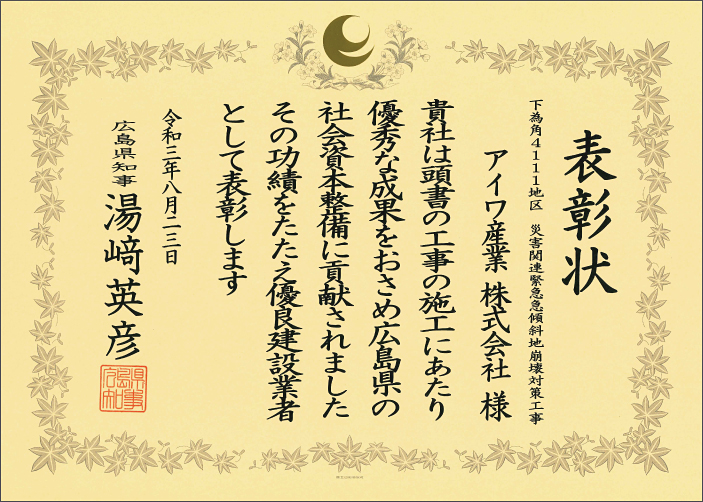 表彰状
下為角4111地区 災害関連緊急急傾斜地崩壊対策工事
アイワ産業 株式会社 様
貴社は頭書の工事の施工にあたり
優秀な成果をおさめ広島県の
社会資本整備に貢献されました
その功績をたたえ優良建設業者
として表彰します
令和三年八月二三日
広島県知事 湯﨑英彦
広島県知事